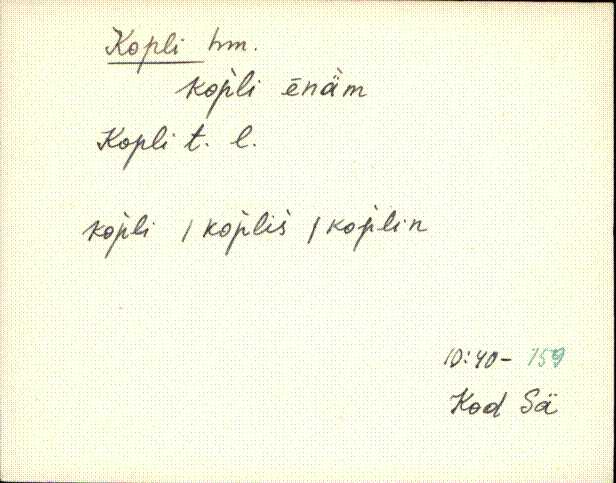 Kopli hm.
kop̀li ēnäm
Kopli t. l.
kop̀li / kop̀liš / kop̀lin
10:40- 159
Kod Sä